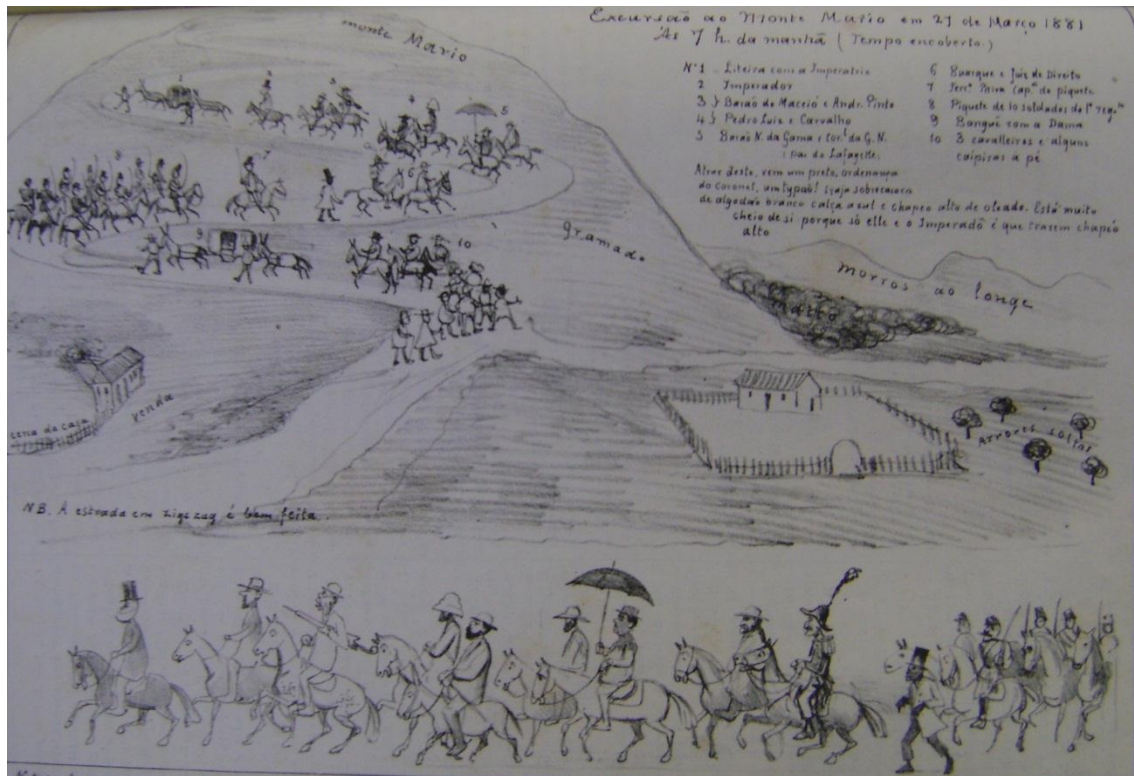 Excursão ao Monte Mario em 27 de Março 1881
Ás 7 h. da manhã (Tempo encoberto.)
monte Mario
Nº1 Liteira com a Imperatriz
2 Imperador
3 } Barão de Maceió e Andr. Pinto
4 } Pedro Luiz e Carvalho
5 Barão N. da Gama e Corl. da G. N.
(pai do Lafayette)
6 Buarque e Juiz de Direito
7 Paiva Cap.m do piquete
8 Piquete de 10 soldados do 1º reg.to
9 Bangué com a Dama
10 3 cavalleiros e alguns
caipiras a pé
Atraz deste, vem um preto, ordenança
do Coronel, um typão! traja sobrecasaca
de algodão branco calça azul e chapeo alto de oleado. Está muito
cheio de si porque só elle e o Imperador é que trazem chapéo
alto
1
2
3
4
5
6
7
8
9
10
gramado
morros ao longe
Matto
venda
cerca da casa
Arvores
NB. A estrada em zigzag é bem feita.